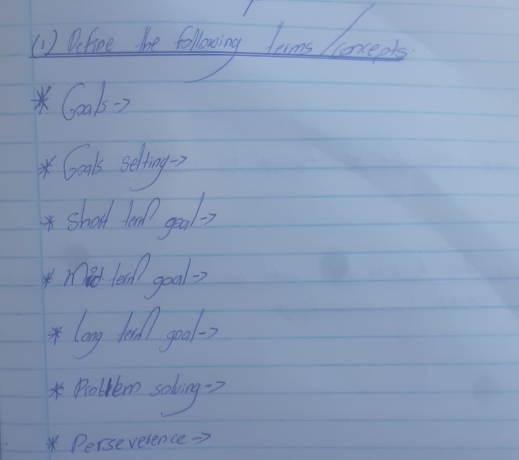 (1) Define the following terms/concepts.
* Goals->
* Goals setting->
* Short term goal->
* Mid term goal->
* Long term goal->
* Problem solving->
* Perseverence->